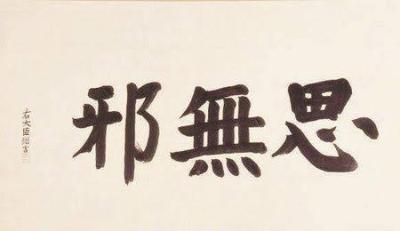 思無邪
右大臣